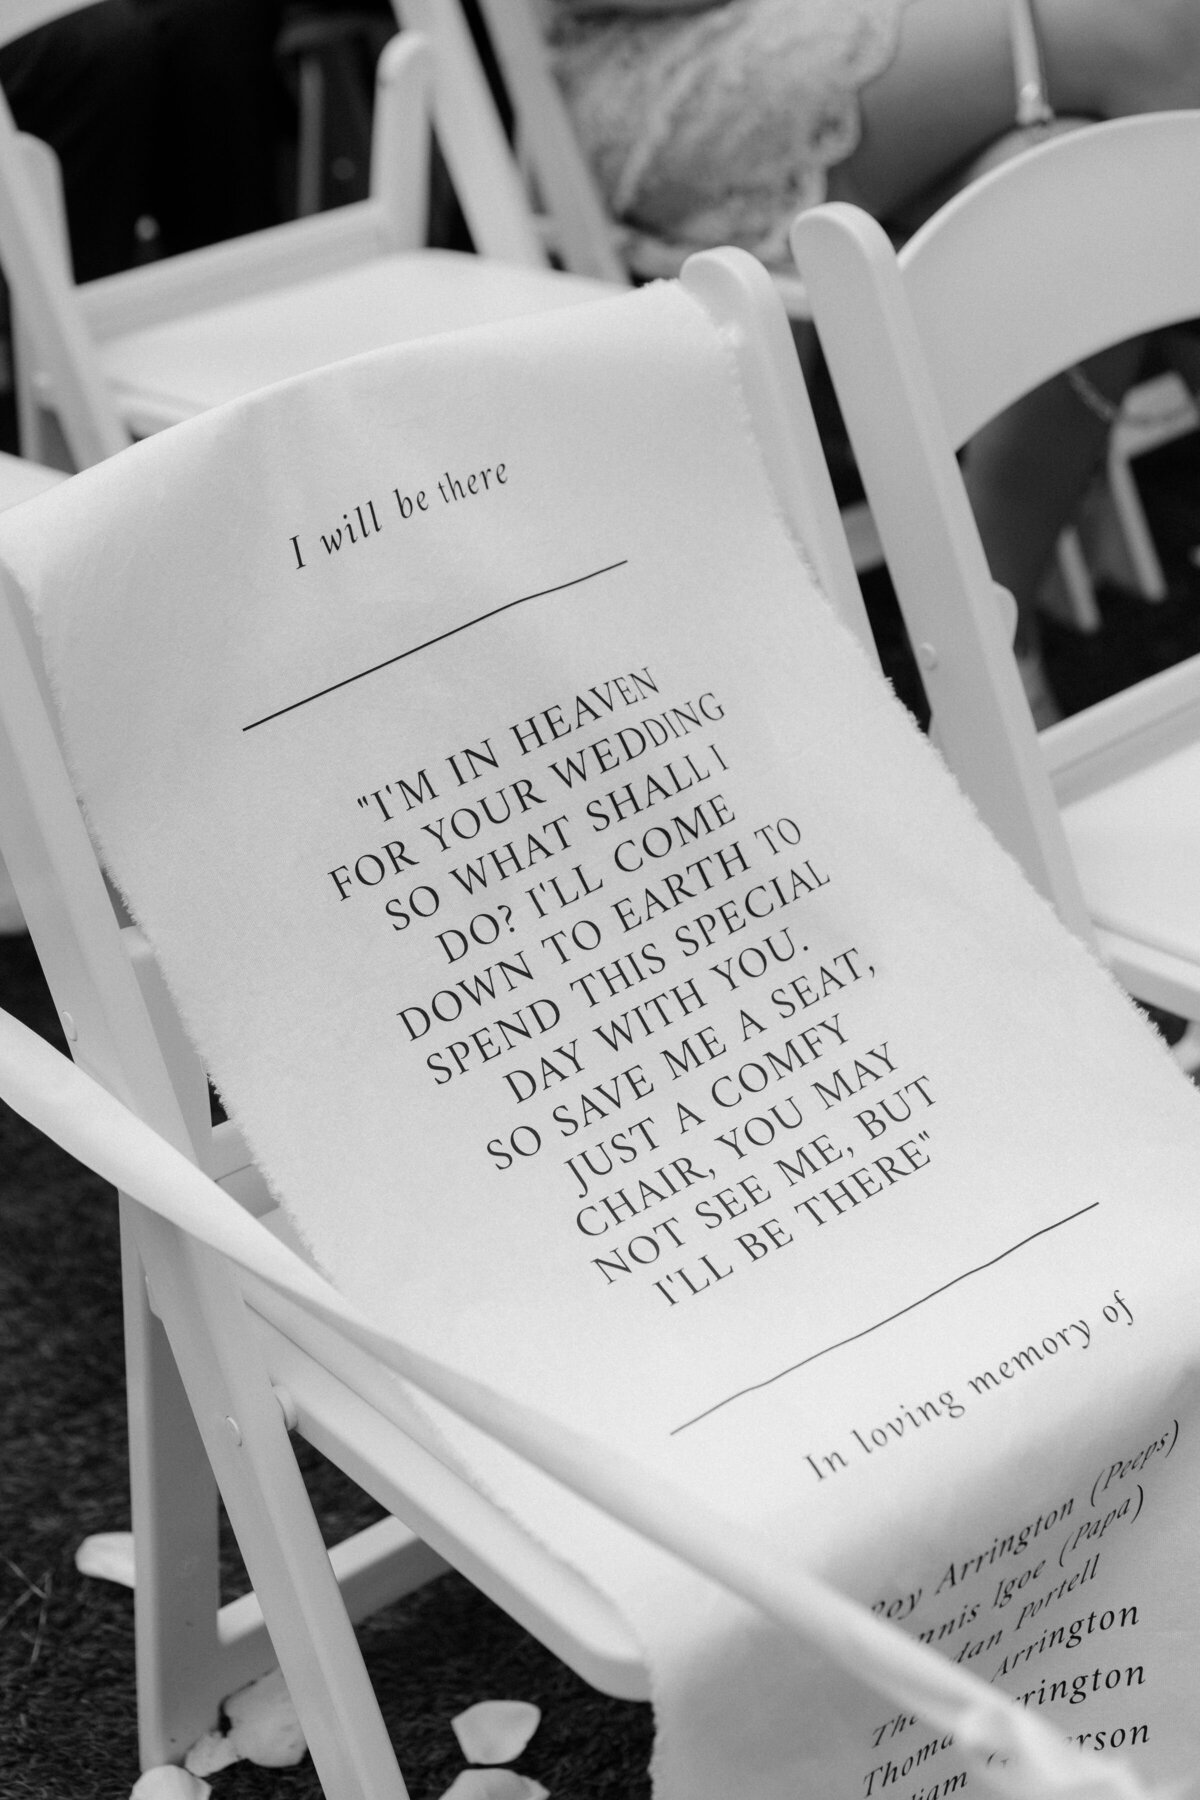 I will be there
"I'M IN HEAVEN
FOR YOUR WEDDING
SO WHAT SHALL I
DO? I'LL COME
DOWN TO EARTH TO
SPEND THIS SPECIAL
DAY WITH YOU.
SO SAVE ME A SEAT,
JUST A COMFY
CHAIR, YOU MAY
NOT SEE ME, BUT
I'LL BE THERE"
In loving memory of
Roy Arrington (Peeps)
Igoe (Papa)
Portell
Arrington